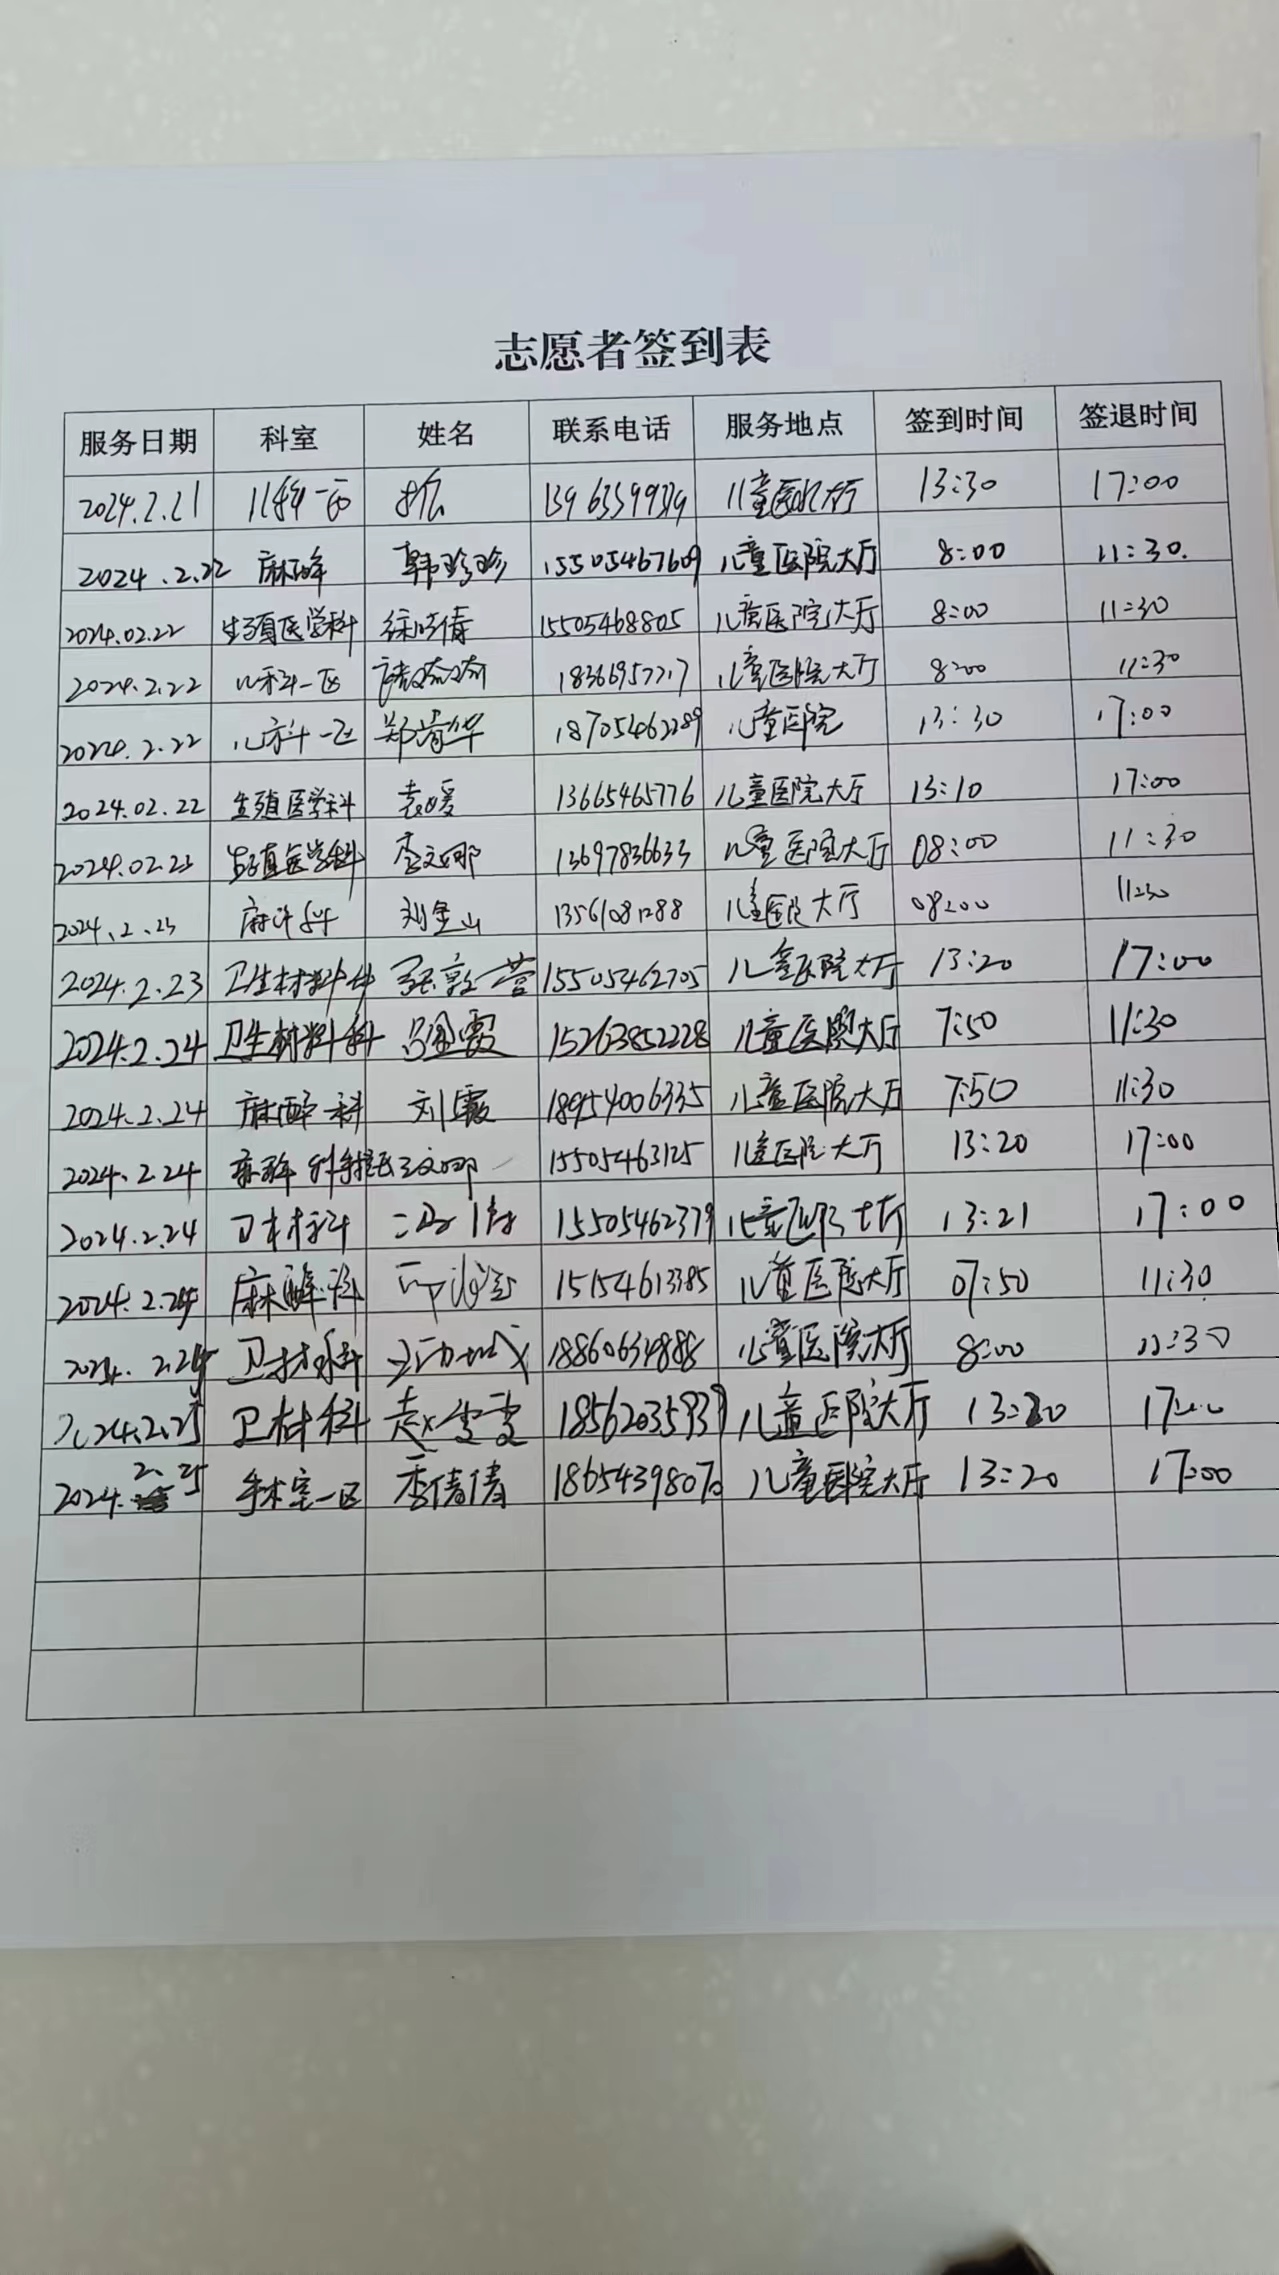 志愿者签到表
服务日期 科室 姓名 联系电话 服务地点 签到时间 签退时间
2024.2.21 儿科一区 13963599379 儿童医院大厅 13:30 17:00
2024.2.22 麻醉 韩珍珍 15505467609 儿童医院大厅 8:00 11:30.
2024.02.22 生殖医学科 徐晓倩 15505468805 儿童医院大厅 8:00 11:30
2024.2.22 儿科一区 18366957717 儿童医院大厅 8:00 11:30
2024.2.22 儿科一区 郑清华 18705462289 儿童医院 13:30 17:00
2024.02.22 生殖医学科 袁媛 13665465776 儿童医院大厅 13:10 17:00
2024.02.23 生殖医学科 李文娜 13697836633 儿童医院大厅 08:00 11:30
2024.2.23 麻醉科 刘金山 13561081288 儿童医院大厅 08:00 11:30
2024.2.23 卫生材料科 张敦营 15505462705 儿童医院大厅 13:20 17:00
2024.2.24 卫生材料科 吕金霞 15263852228 儿童医院大厅 7:50 11:30
2024.2.24 麻醉科 刘霞 18954006335 儿童医院大厅 7:50 11:30
2024.2.24 麻醉科 王文娜 15505463125 儿童医院大厅 13:20 17:00
2024.2.24 卫材科 15505462379 儿童医院大厅 13:21 17:00
2024.2.24 麻醉科 15154613385 儿童医院大厅 07:50 11:30
2024.2.24 卫材科 18860634888 儿童医院大厅 8:00 11:30
2024.2.25 卫材科 赵雪雯 18562035939 儿童医院大厅 13:20 17:00
2024.2.25 手术室一区 季倩倩 18654398070 儿童医院大厅 13:20 17:00